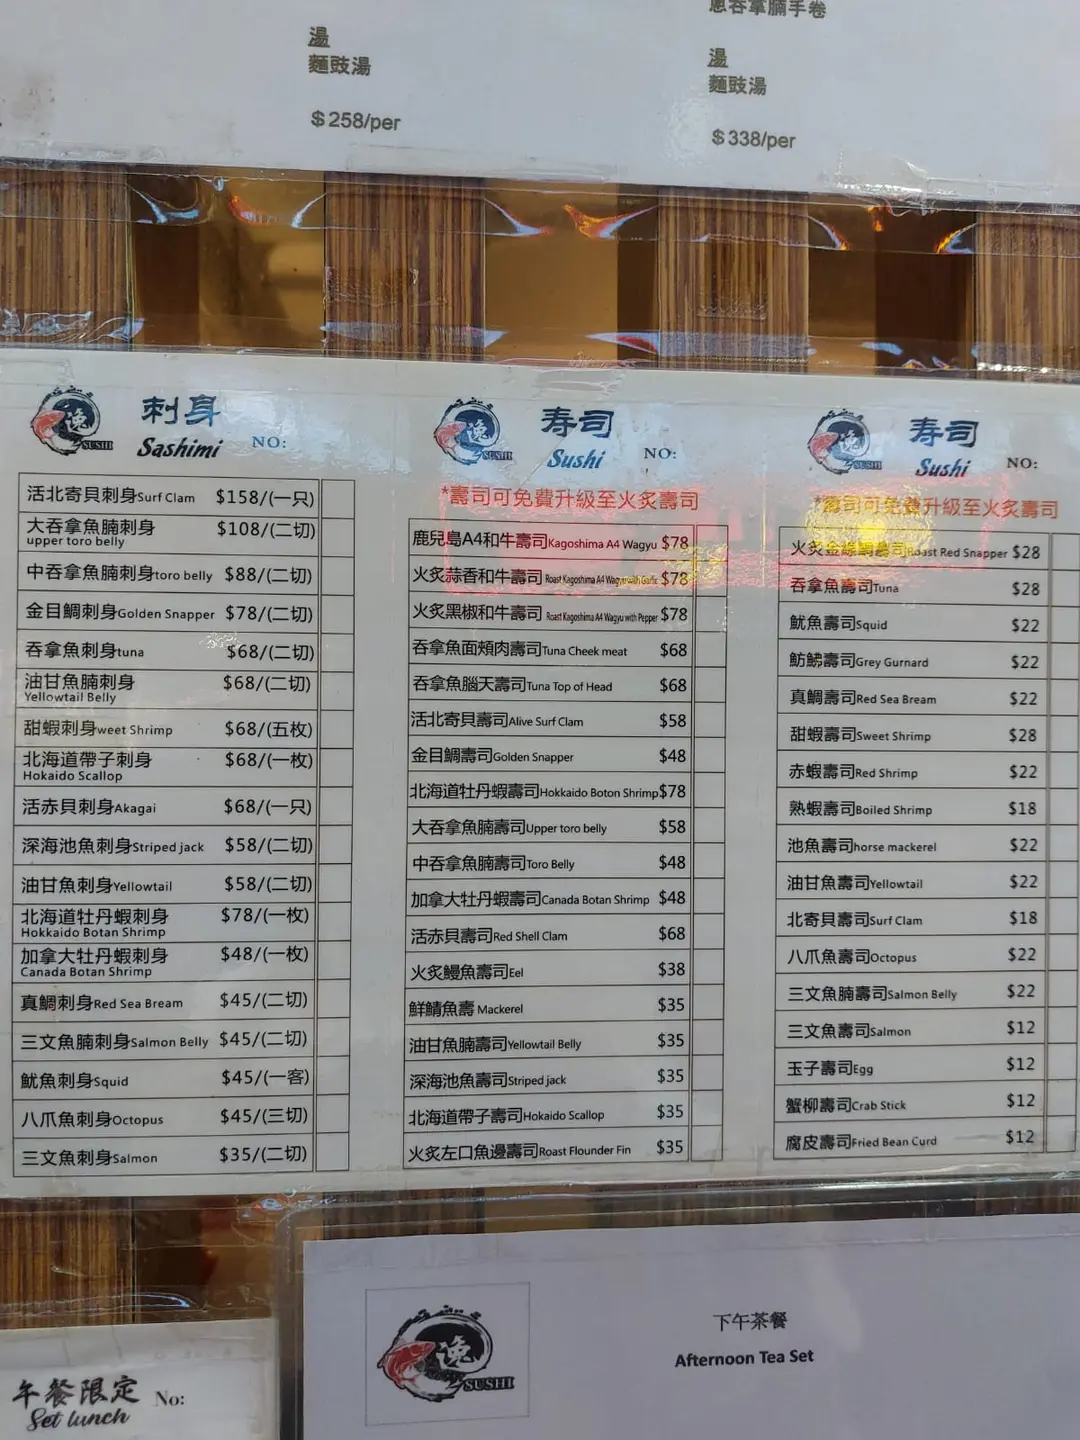 湯
麵豉湯
$258/per
蔥吞拿腩手卷
湯
麵豉湯
$338/per
逸 SUSHI
刺身
Sashimi NO:
活北寄貝刺身Surf Clam $158/(一只)
大吞拿魚腩刺身 $108/(二切)
upper toro belly
中吞拿魚腩刺身toro belly $88/(二切)
金目鯛刺身Golden Snapper $78/(二切)
吞拿魚刺身tuna $68/(二切)
油甘魚腩刺身 $68/(二切)
Yellowtail Belly
甜蝦刺身weet Shrimp $68/(五枚)
北海道帶子刺身 $68/(一枚)
Hokaido Scallop
活赤貝刺身Akagai $68/(一只)
深海池魚刺身Striped jack $58/(二切)
油甘魚刺身Yellowtail $58/(二切)
北海道牡丹蝦刺身 $78/(一枚)
Hokkaido Botan Shrimp
加拿大牡丹蝦刺身 $48/(一枚)
Canada Botan Shrimp
真鯛刺身Red Sea Bream $45/(二切)
三文魚腩刺身Salmon Belly $45/(二切)
魷魚刺身Squid $45/(一客)
八爪魚刺身Octopus $45/(三切)
三文魚刺身Salmon $35/(二切)
逸 SUSHI
寿司
Sushi NO:
*壽司可免費升級至火炙壽司
鹿兒島A4和牛壽司Kagoshima A4 Wagyu $78
火炙蒜香和牛壽司 Roast Kagoshima A4 Wagyu with Garlic $78
火炙黑椒和牛壽司 Roast Kagoshima A4 Wagyu with Pepper $78
吞拿魚面頰肉壽司Tuna Cheek meat $68
吞拿魚腦天壽司Tuna Top of Head $68
活北寄貝壽司Alive Surf Clam $58
金目鯛壽司Golden Snapper $48
北海道牡丹蝦壽司Hokkaido Boton Shrimp $78
大吞拿魚腩壽司Upper toro belly $58
中吞拿魚腩壽司Toro Belly $48
加拿大牡丹蝦壽司Canada Botan Shrimp $48
活赤貝壽司Red Shell Clam $68
火炙鰻魚壽司Eel $38
鮮鯖魚壽 Mackerel $35
油甘魚腩壽司Yellowtail Belly $35
深海池魚壽司Striped jack $35
北海道帶子壽司Hokaido Scallop $35
火炙左口魚邊壽司Roast Flounder Fin $35
逸 SUSHI
寿司
Sushi NO:
*壽司可免費升級至火炙壽司
火炙金線鯛壽司Roast Red Snapper $28
吞拿魚壽司Tuna $28
魷魚壽司Squid $22
魴鮄壽司Grey Gurnard $22
真鯛壽司Red Sea Bream $22
甜蝦壽司Sweet Shrimp $28
赤蝦壽司Red Shrimp $22
熟蝦壽司Boiled Shrimp $18
池魚壽司horse mackerel $22
油甘魚壽司Yellowtail $22
北寄貝壽司Surf Clam $18
八爪魚壽司Octopus $22
三文魚腩壽司Salmon Belly $22
三文魚壽司Salmon $12
玉子壽司Egg $12
蟹柳壽司Crab Stick $12
腐皮壽司Fried Bean Curd $12
午餐限定 No:
Set lunch
逸 SUSHI
下午茶餐
Afternoon Tea Set